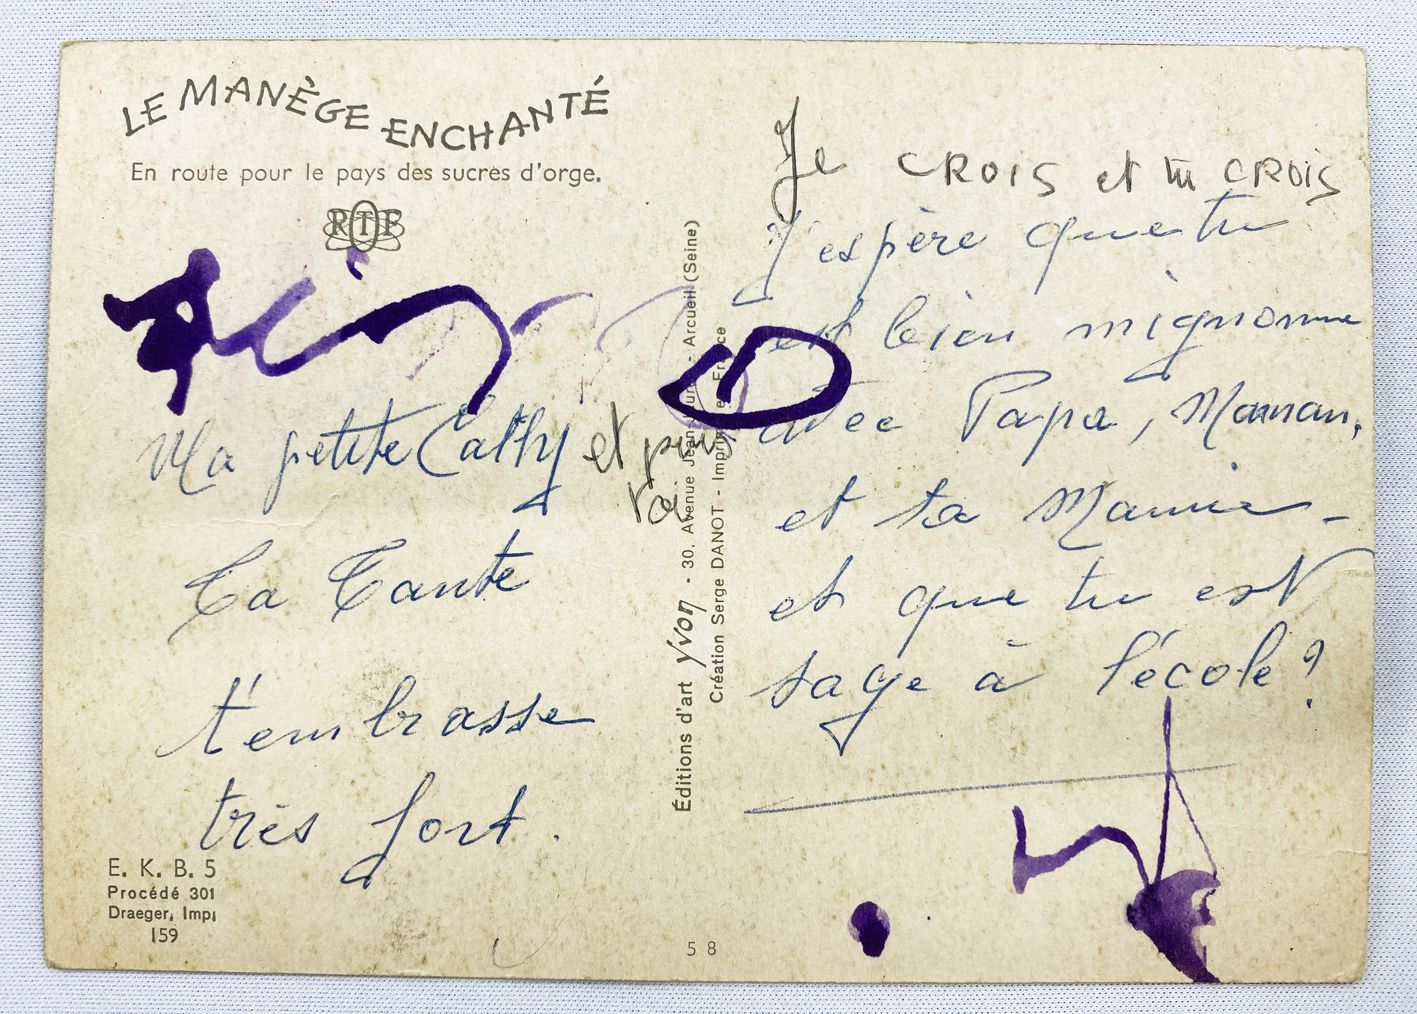 LE MANÈGE ENCHANTÉ
En route pour le pays des sucres d'orge.
RTF
Ma petite Cathy et puis
toi
Ta Tante
t'embrasse
très fort.
E. K. B. 5
Procédé 301
Draeger, Imp.
159
Éditions d'art Yvon - 30, Avenue Jean - Arcueil (Seine)
Création Serge DANOT - Imprimé en France
58
Je CROIS et tu CROIS
J'espère que tu
est bien mignonne
avec Papa, Maman,
et ta Mamie -
et que tu est
sage à l'école ?